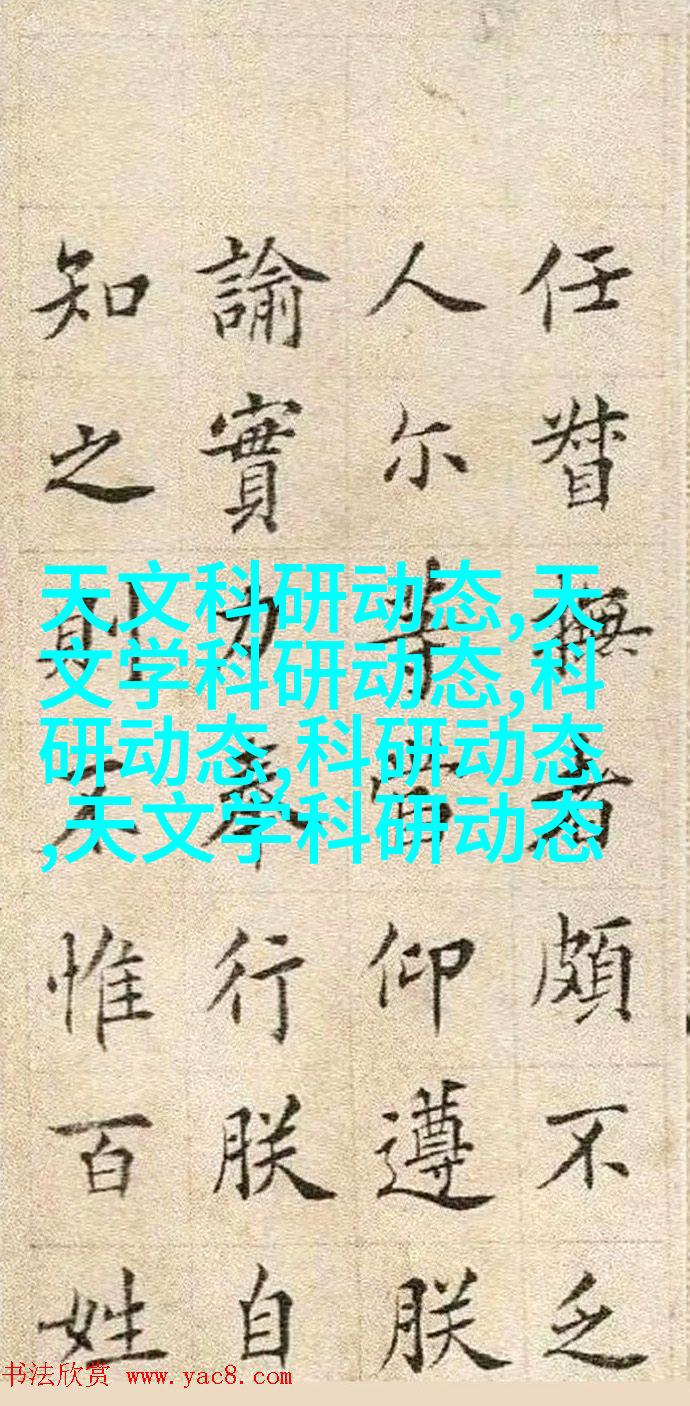 任督撫者頗不乏
人尔等仰遵朕
諭實力奉行朕自
知之則不惟百姓
天文科研动态,天
文学科研动态,科
研动态,科研动态
,天文学科研动态
书法欣赏 www.yac8.com